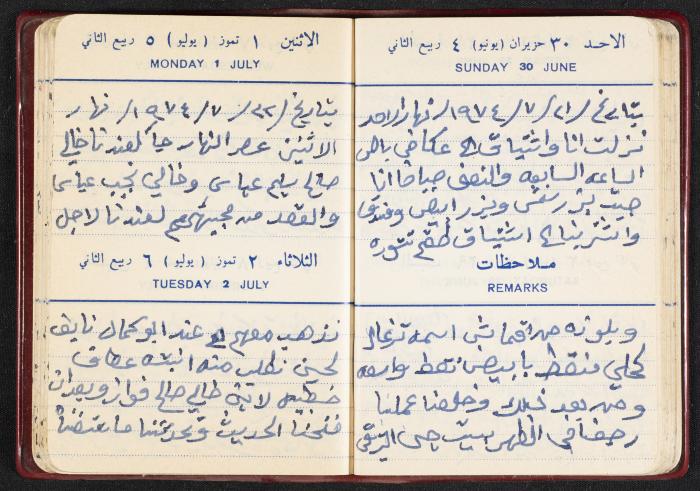 الاحد ٣٠ حزيران (يونيو) ٤ ربيع الثاني
SUNDAY 30 JUNE
بتاريخ /٢١/ ٧/ ١٩٧٤/ نهار الاحد
نزلت انا واشتياق الى عكا في باص
الساعه السابعه والنصف صباحا انا
وفندق
واشترينا الى اشتياق طقم تنوره
ملاحظات
REMARKS
وبلوزه من قماش اسمه
كحلي منقط بابيض نقط واسعه
ومن بعد ذلك وخلصنا عملنا
رجعنا في الظهر
الاثنين ١ تموز (يوليو) ٥ ربيع الثاني
MONDAY 1 JULY
بتاريخ /٢٢/ ٧/ ١٩٧٤/ نهار
الاثنين عصر النهار جاء لعندنا خالي
صالح سليم عباس وخالي نجيب عباس
والقصد من مجيئهم لعندنا لاجل
الثلاثاء ٢ تموز (يوليو) ٦ ربيع الثاني
TUESDAY 2 JULY
نذهب معهم الى عند ابو كمال نايف
لحين نطلب منه ابنته عطاف
خطيبه لابن خالي صالح فواز وبعدان
فتحنا الحديث وتحدثنا ما